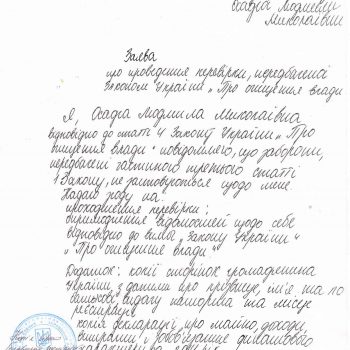 Осадча Людмили
Миколаївни
Заява
про проведення перевірки, передбаченої
Законом України „Про очищення влади
Я, Осадча Людмила Миколаївна
відповідно до статті 4 Закону України „Про
очищення влади" повідомляю, що заборони,
передбачені частиною третьою статті
1 Закону, не застосовуються щодо мене.
Надаю згоду на:
проходження перевірки;
оприлюднення відомостей щодо себе
відповідно до вимог „Закону України"
„Про очищення влади"
Додаток: копії сторінок громадянина
України, з даними про прізвище, ім'я та по
батькові видачу паспорта та місце
реєстрації
копія декларації про майно, доходи,
витрати і зобов'язання фінансового
характеру за